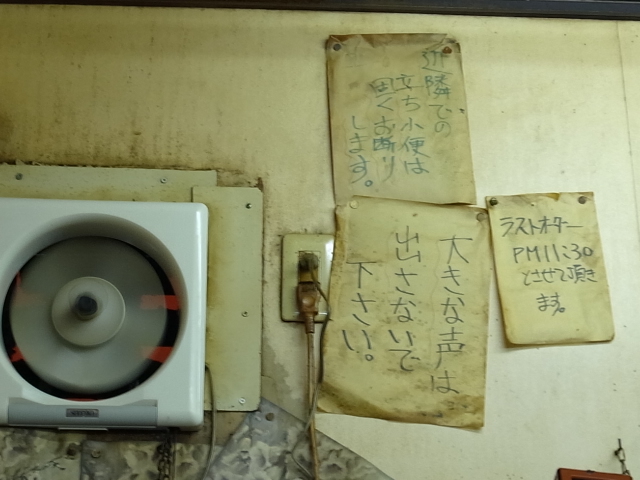 近隣での
立ち小便は
固くお断り
します。
大きな声は
出さないで
下さい。
ラストオーダー
PM11:30
とさせて頂き
ます。